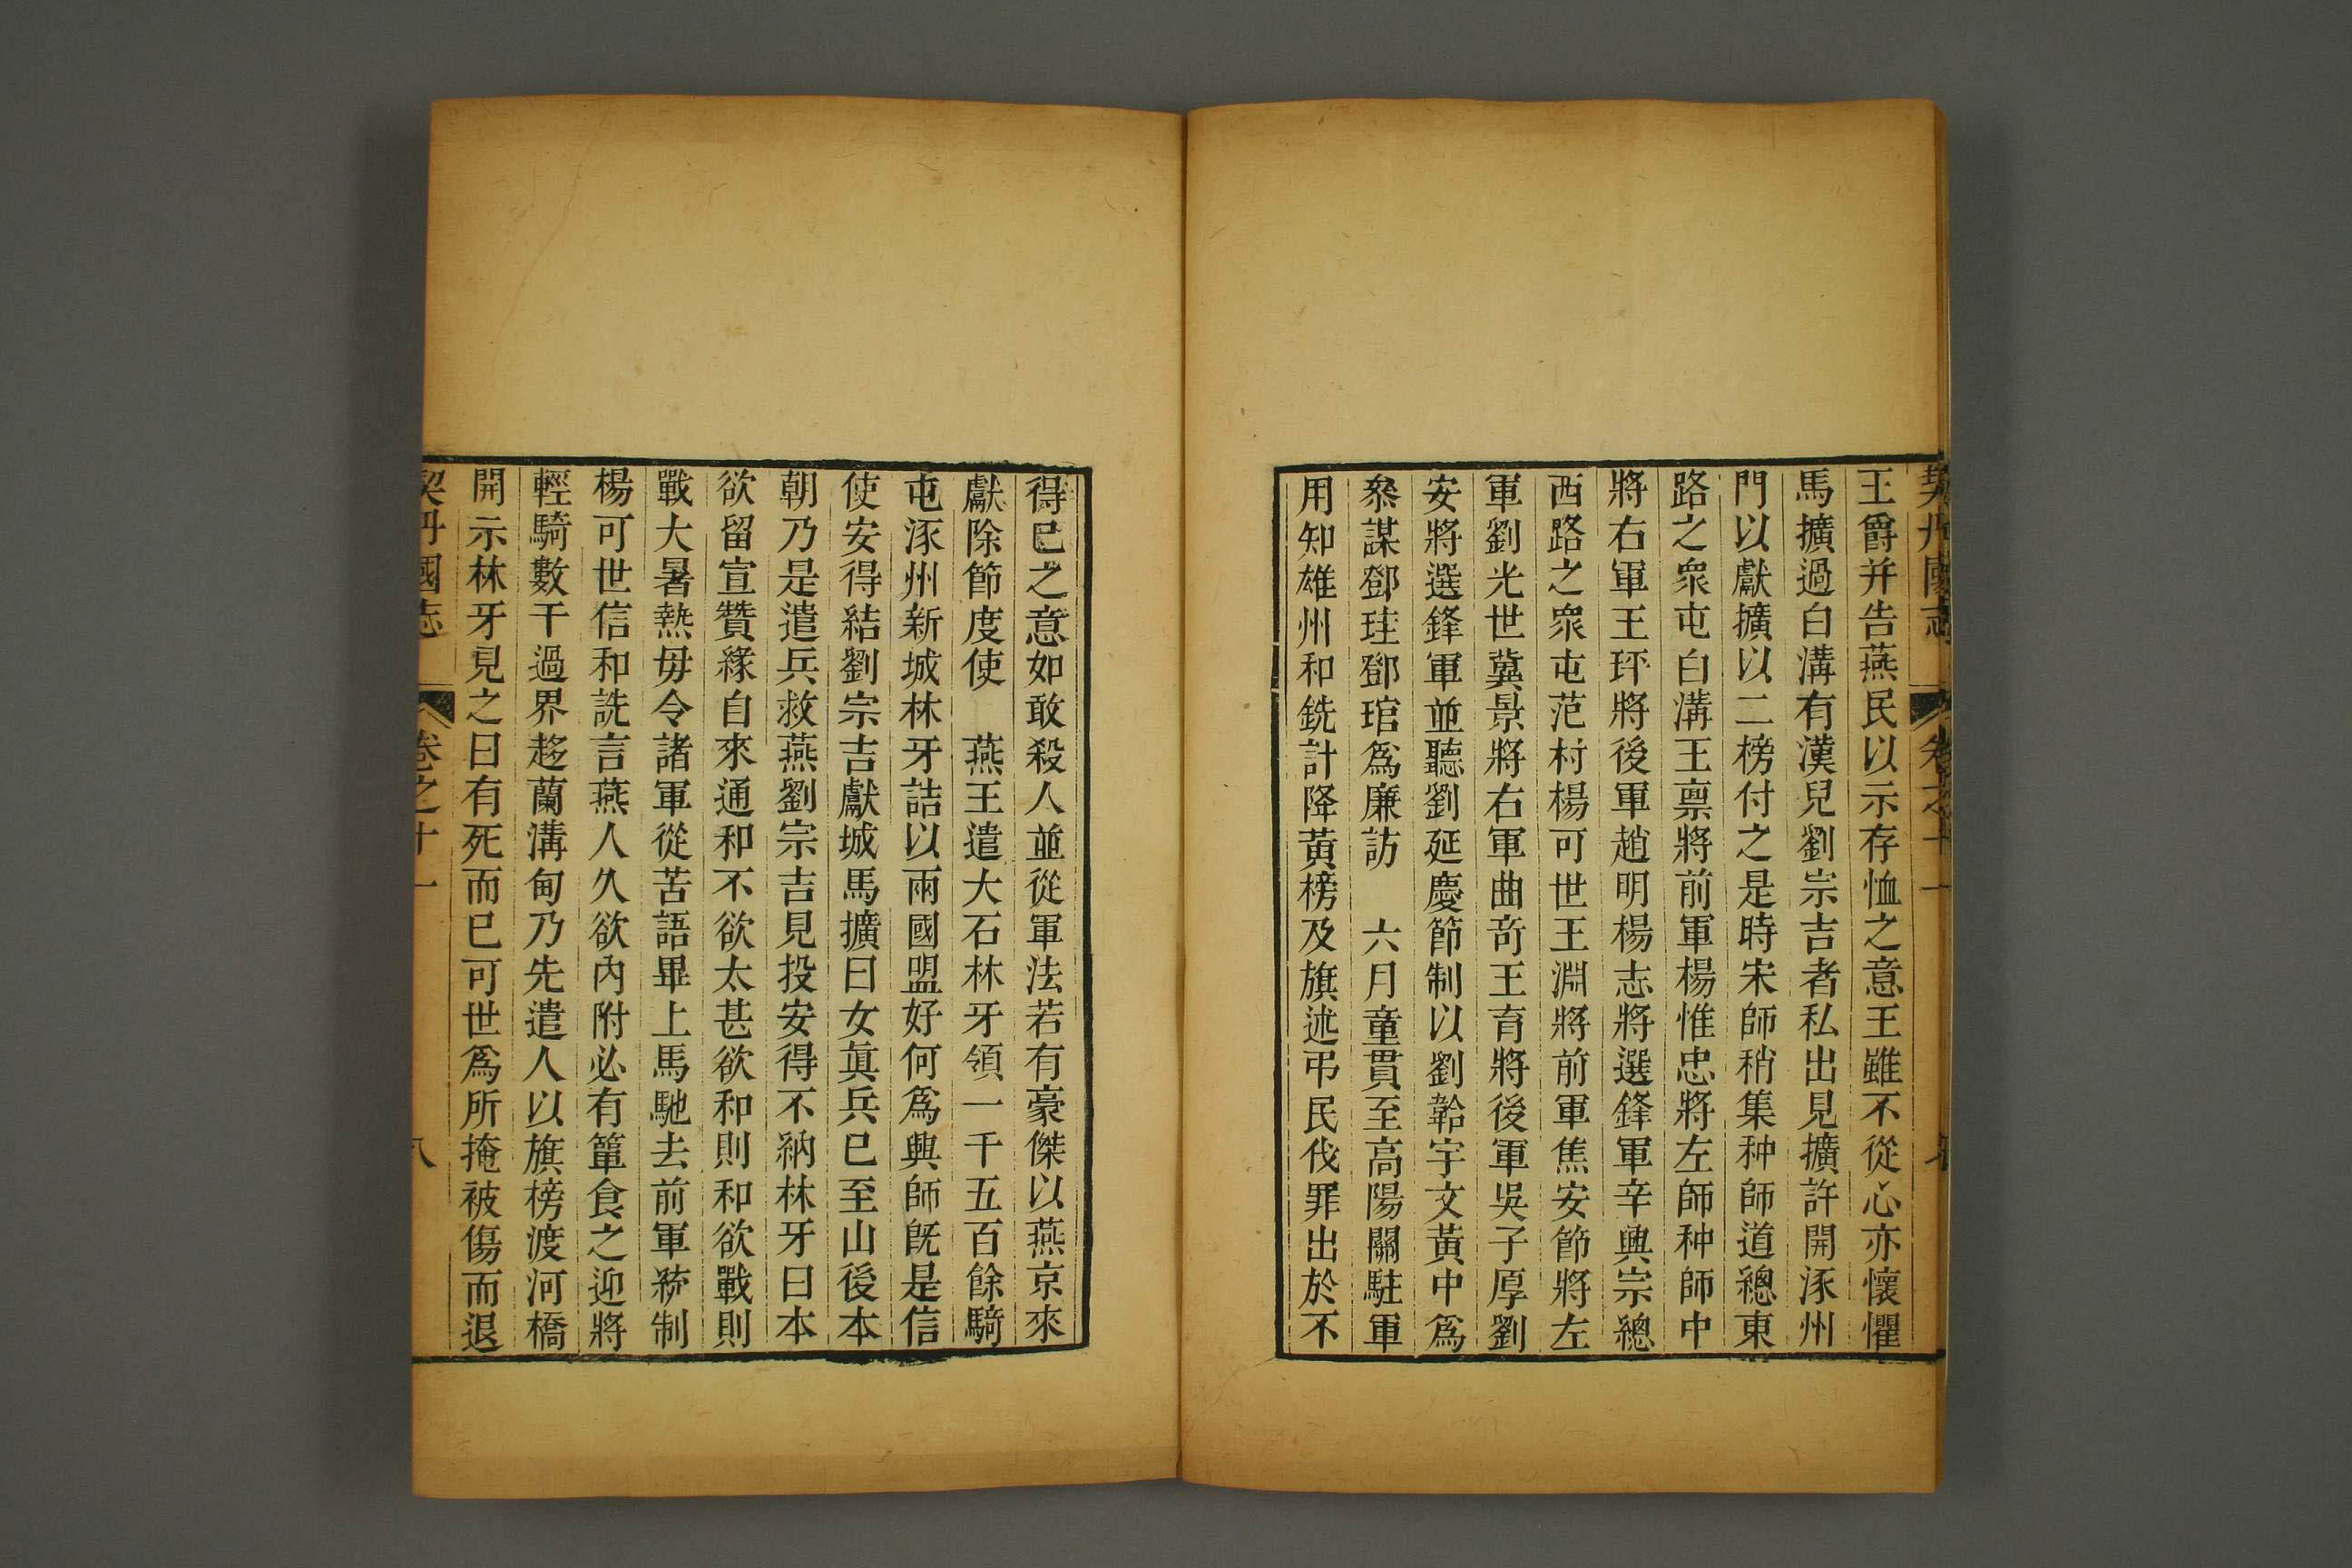 契丹國志 卷之十一 七
王爵并告燕民以示存恤之意王雖不從心亦懷懼
馬擴過白溝有漢兒劉宗吉者私出見擴許開涿州
門以獻擴以二榜付之是時宋師稍集种師道總東
路之衆屯白溝王禀將前軍楊惟忠將左師种師中
將右軍王坪將後軍趙明楊志將選鋒軍辛興宗總
西路之衆屯范村楊可世王淵將前軍焦安節將左
軍劉光世冀景將右軍曲竒王育將後軍吳子厚劉
安將選鋒軍並聽劉延慶節制以劉韐宇文黃中爲
叅謀鄧珪鄧琯爲廉訪　六月童貫至高陽關駐軍
用知雄州和銑計降黃榜及旗述弔民伐罪出於不
得已之意如敢殺人並從軍法若有豪傑以燕京來
獻除節度使　燕王遣大石林牙領一千五百餘騎
屯涿州新城林牙詰以兩國盟好何爲興師旣是信
使安得結劉宗吉獻城馬擴曰女眞兵已至山後本
朝乃是遣兵救燕劉宗吉見投安得不納林牙曰本
欲留宣贊緣自來通和不欲太甚欲和則和欲戰則
戰大暑熱毋令諸軍從苦語畢上馬馳去前軍統制
楊可世信和詵言燕人久欲內附必有簞食之迎將
輕騎數千過界趍蘭溝甸乃先遣人以旗榜渡河橋
開示林牙見之曰有死而已可世爲所掩被傷而退
契丹國志 卷之十一 八